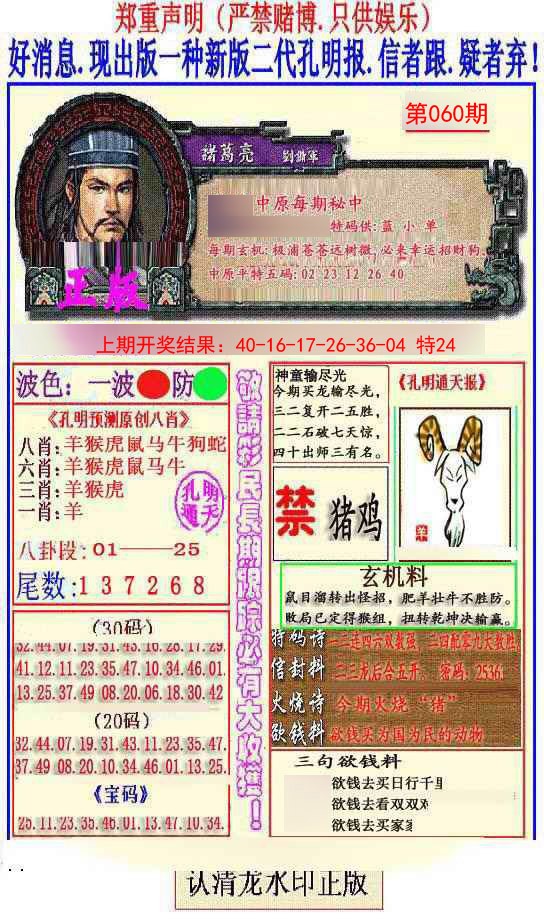 郑重声明（严禁赌博.只供娱乐）
好消息.现出版一种新版二代孔明报.信者跟.疑者弃!
第060期
諸葛亮
中原每期秘中
特码供:蓝 小 单
每期玄机:极浦苍苍远树微,必来幸运招财狗.
中原平特五码:02 23 12 26 40
正版
上期开奖结果：40-16-17-26-36-04 特24
波色：一波 防
《孔明预测原创八肖》
八肖:羊猴虎鼠马牛狗蛇
六肖:羊猴虎鼠马牛
三肖:羊猴虎
一肖:羊
孔明
通天
八卦段:01——25
尾数:137268
(30码)
32.44.07.19.31.43.16.28.17.29.
41.12.11.23.35.47.10.34.46.01.
13.25.37.49.08.20.06.18.30.42
(20码)
32.44.07.19.31.43.11.23.35.47.
37.49.08.20.10.34.46.01.13.25.
《宝码》
25.11.23.35.46.01.13.47.10.34.
敬請彩民長期跟踪必有大收獲！
神童输尽光
今期买龙输尽光，
三二复开二五胜，
二二石破七天惊，
四十出师三有名。
《孔明通天报》
禁 猪鸡
羊
玄机料
鼠目溜转出怪招，肥羊壮牛不胜防。
败局已定得猴组，扭转乾坤决输赢。
特码诗 一二连四六双数强，二四配零九大数胜
信封料 二三龙后合五开。 密码：2536.
火烧诗 今期火烧“猪”
欲钱料 欲钱买为国为民的动物
三句欲钱料
欲钱去买日行千里
欲钱去看双双
欲钱去买家
认清龙水印正版